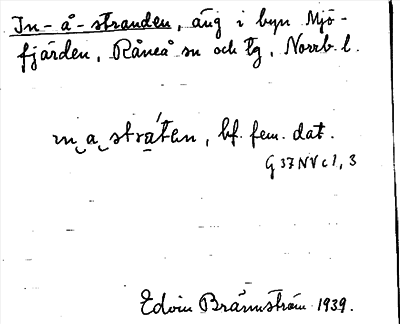 In-å-stranden, äng i byn Mjö-
fjärden, Råneå sn och tg, Norrb. l.
bf. fem. dat.
G 37 NV c 1, 3
Edvin Brännström 1939.